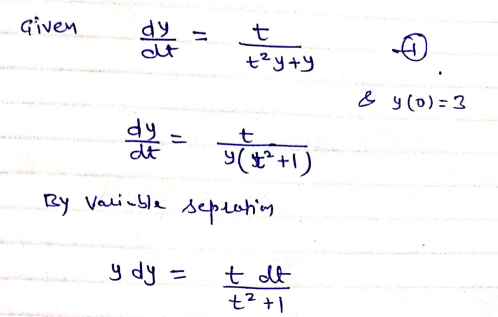 Given dy/dt = t/(t²y+y) — ①
& y(0)=3
dy/dt = t/(y(t²+1))
By Variable sepration
y dy = t dt/(t²+1)